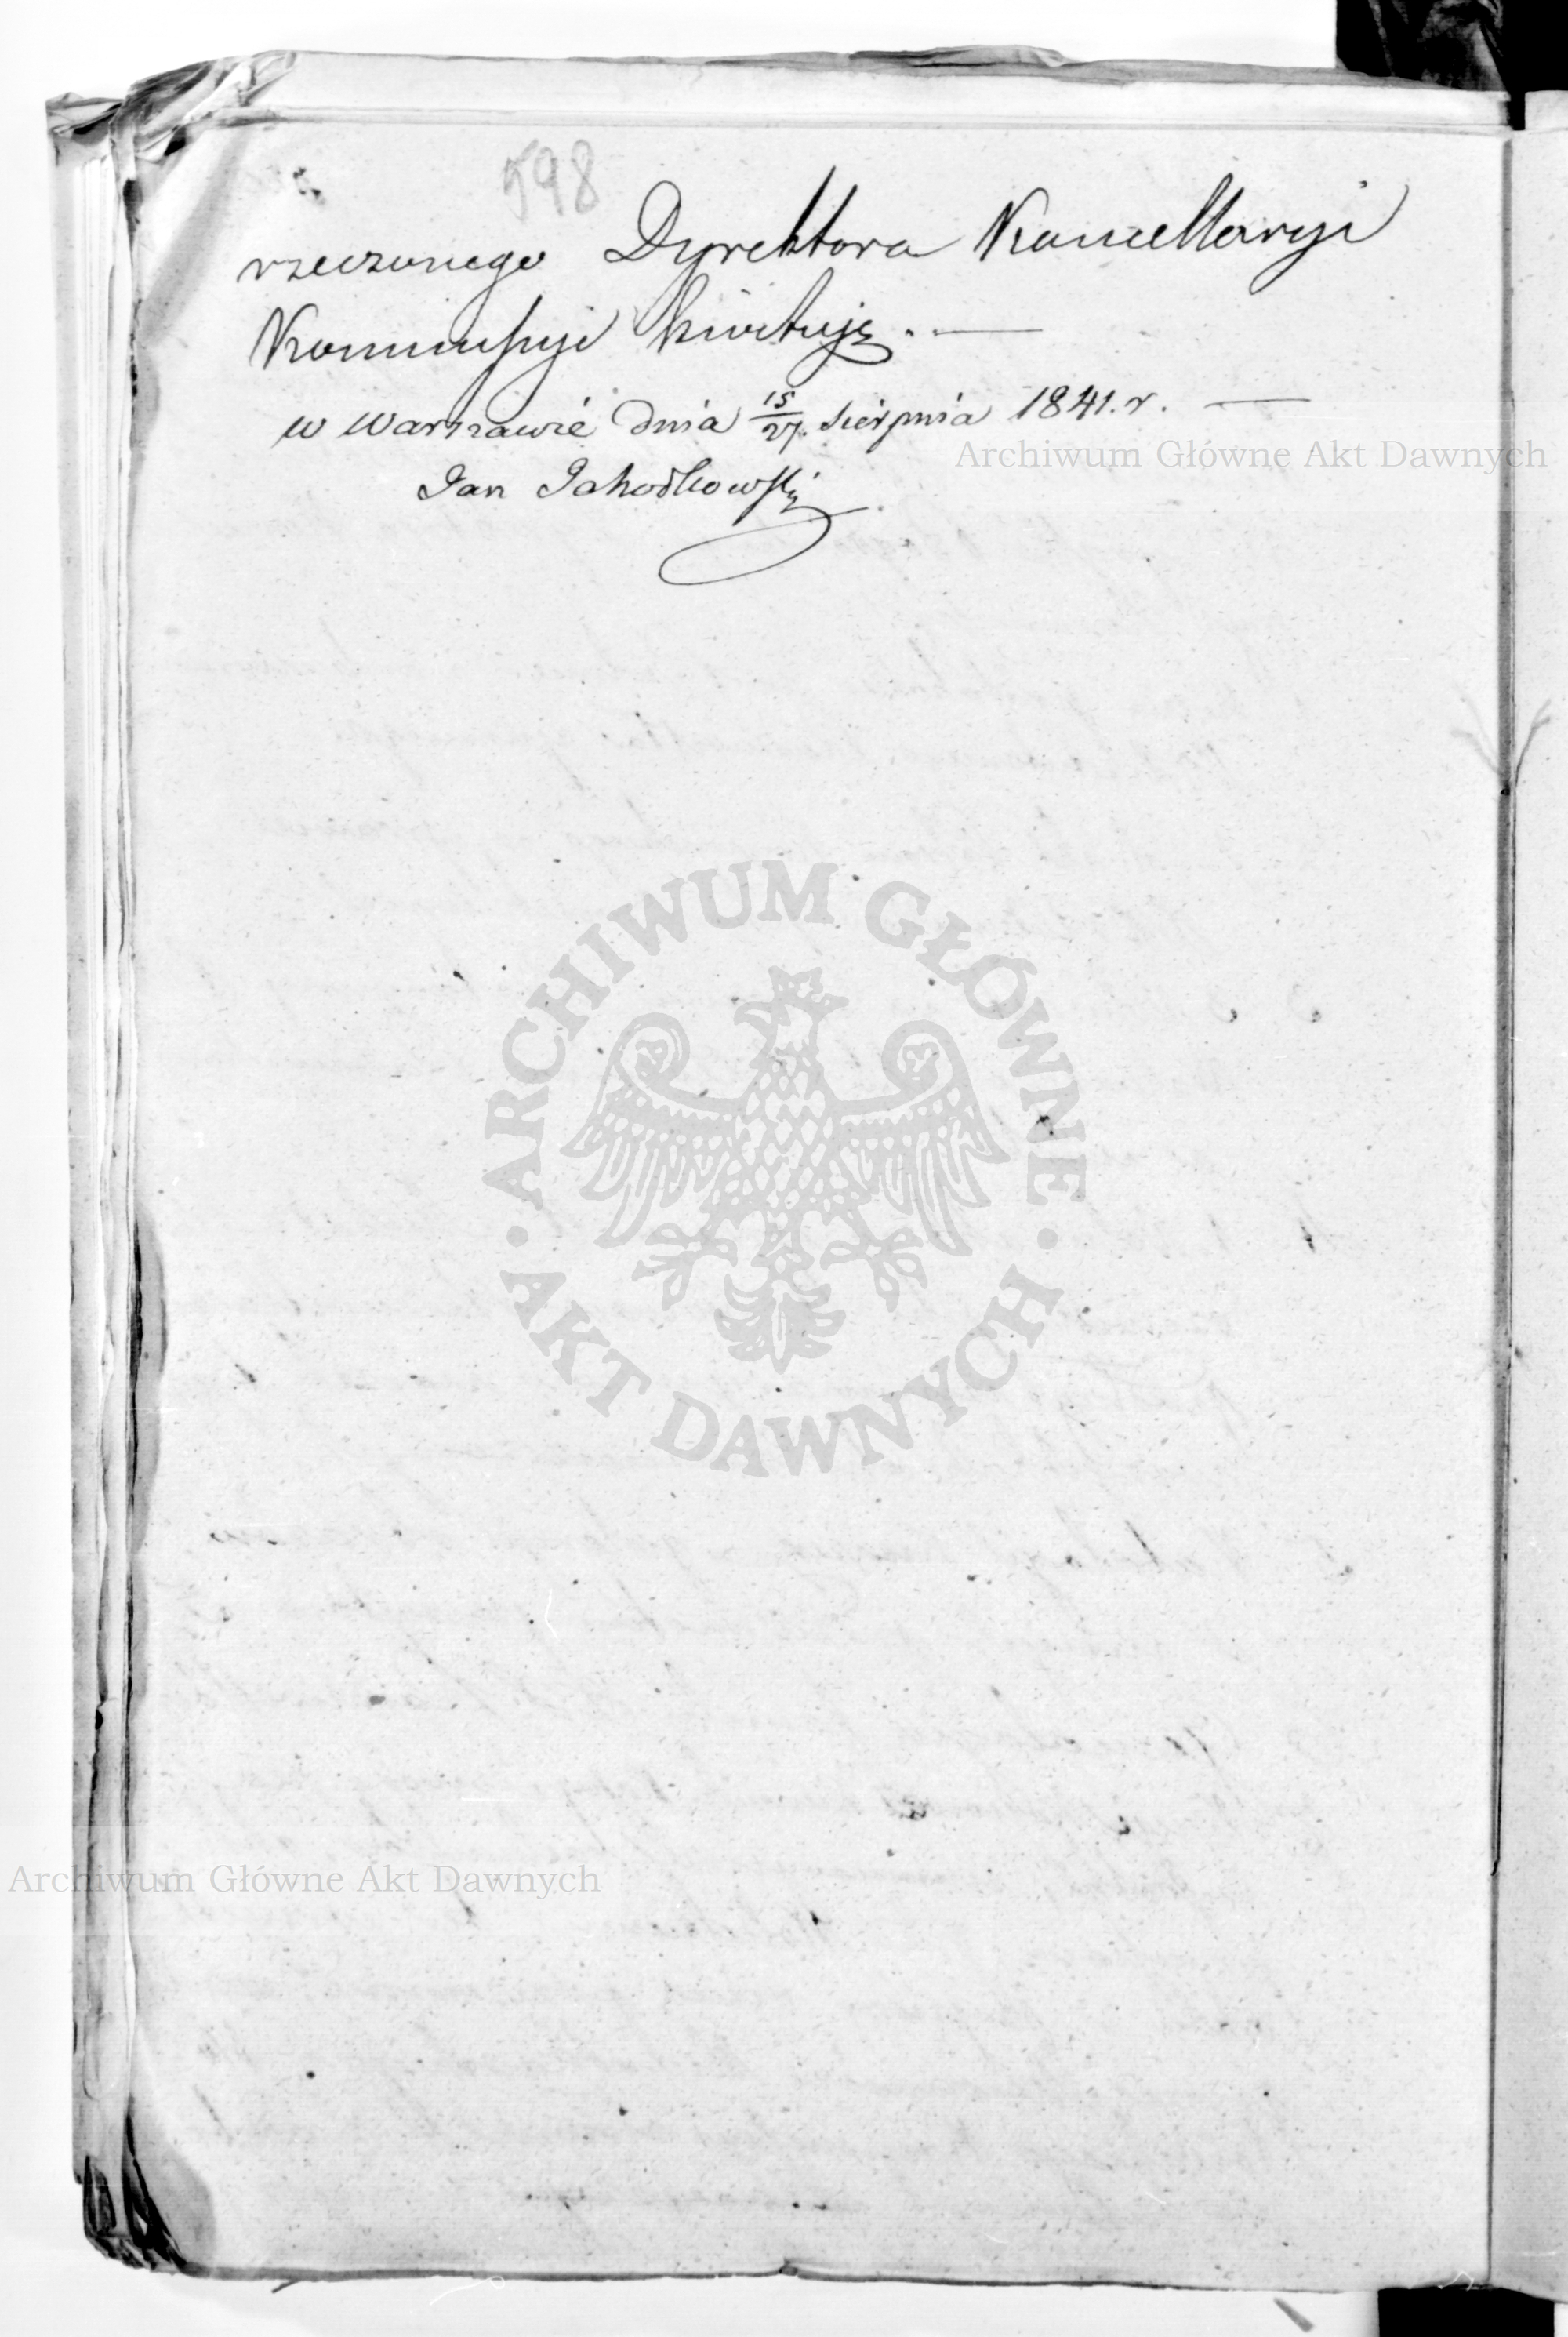 598
rzeczonego Dyrektora Kancellaryi
Kommissyi kwituję. —
w Warszawie dnia 15/27. Sierpnia 1841. r. —
Jan Jakodkowski
Archiwum Główne Akt Dawnych
ARCHIWUM GŁÓWNE
· AKT DAWNYCH ·
Archiwum Główne Akt Dawnych